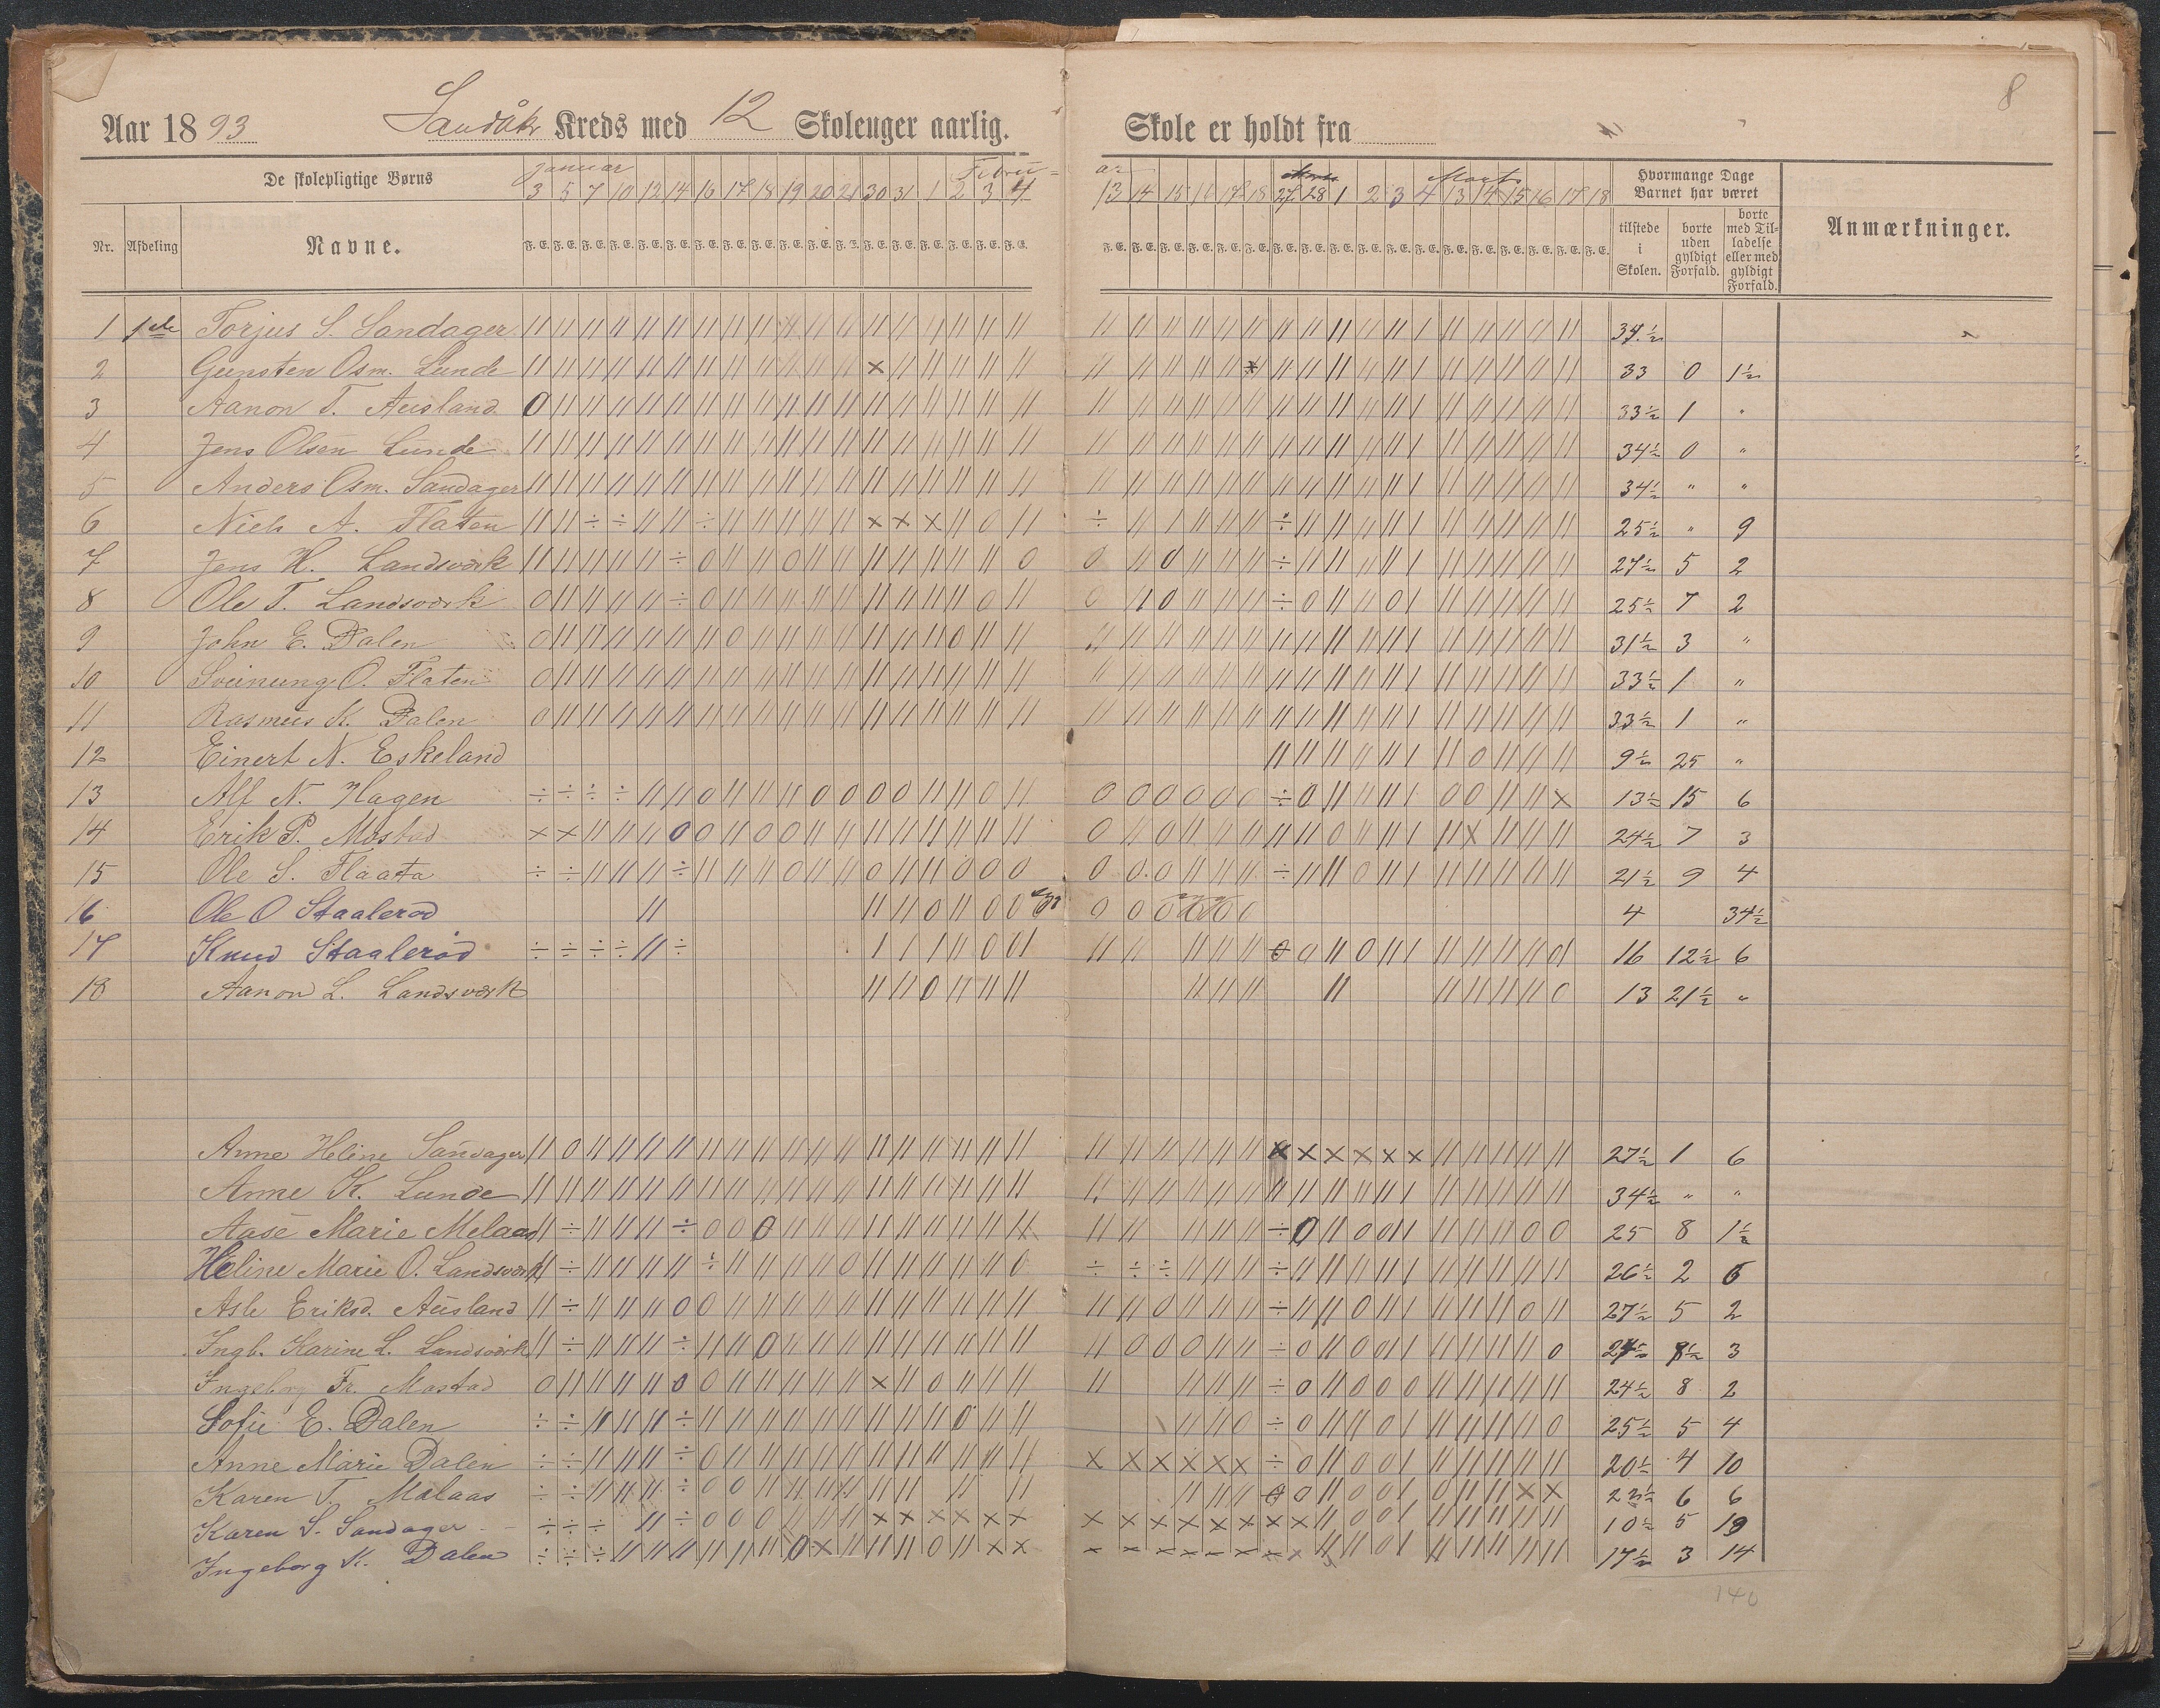 8
Aar 1893 Sandåkr Kreds med 12 Skoleuger aarlig. Skole er holdt fra
De skolepligtige Børns
Januar Febru- ar Marts
3 5 7 10 12 14 16 17 18 19 20 21 30 31 1 2 3 4 13 14 15 16 17 18 27 28 1 2 3 4 13 14 15 16 17 18
Hvormange Dage Barnet har været
Nr. Afdeling Navne.
F. E. F. E. F. E. F. E. F. E. F. E. F. E. F. E. F. E. F. E. F. E. F. E. F. E. F. E. F. E. F. E. F. E. F. E.
F. E. F. E. F. E. F. E. F. E. F. E. F. E. F. E. F. E. F. E. F. E. F. E. F. E. F. E. F. E. F. E. F. E. F. E.
tilstede i Skolen.
borte uden gyldigt Forfald.
borte med Tilladelse eller med gyldigt Forfald.
Anmærkninger.
1 1ste Torjus S. Sandager 34 1/2
2 Gunsten Osm. Lunde 33 0 1 1/2
3 Aanon T. Ausland 33 1/2 1 "
4 Jens Olsen Lunde 34 1/2 0 "
5 Anders Osm. Sandager 34 1/2 " "
6 Niels A. Flaten 25 1/2 " 9
7 Jens H. Landsværk 27 1/2 5 2
8 Ole T. Landsværk 25 1/2 7 2
9 John E. Dalen 31 1/2 3 "
10 Sveinung O. Flaten 33 1/2 1 "
11 Rasmus K. Dalen 33 1/2 1 "
12 Einert N. Eskeland 9 1/2 25 "
13 Alf N. Hagen 13 1/2 15 6
14 Erik P. Mostad 24 1/2 7 3
15 Ole S. Flaata 21 1/2 9 4
16 Ole O Staalerød 4 34 1/2
17 Knud Staalerød 16 12 1/2 6
18 Aanon L. Landsværk 13 21 1/2 "
Anne Heline Sandager 27 1/2 1 6
Anne K. Lunde 34 1/2 " "
Aase Marie Melaas 25 8 1 1/2
Heline Marie O. Landsværk 26 1/2 2 6
Asle Eriksd. Ausland 27 1/2 5 2
Ingb. Karine L. Landsværk 8 1/2 3
Ingeborg Fr. Mostad 24 1/2 8 2
Sofie E. Dalen 25 1/2 5 4
Anne Marie Dalen 20 1/2 4 10
Karen T. Mælaas 6 6
Karen S. Sandager 10 1/2 5 19
Ingeborg K. Dalen 17 1/2 3 14
140